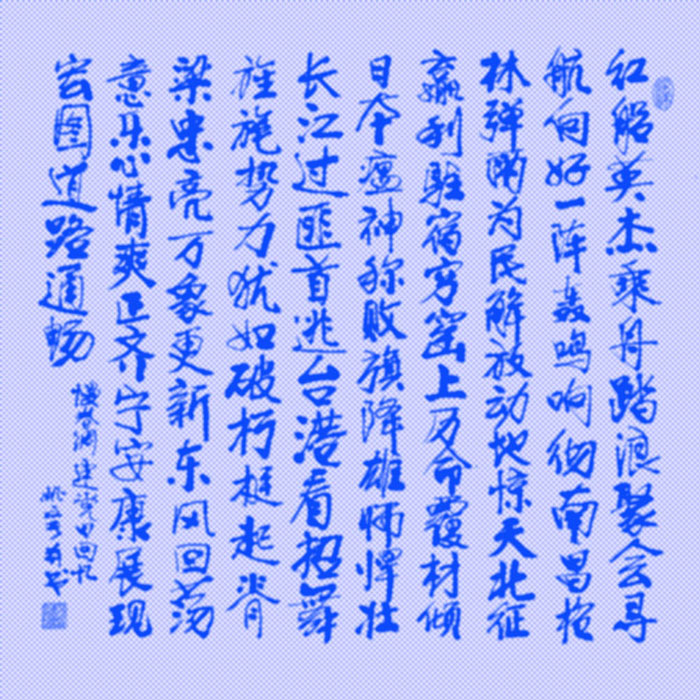 红船英杰乘舟踏浪聚会寻
航向好一阵轰鸣响彻南昌枪
林弹雨为民解放动地惊天北征
赢利驻宿穷窑上万命覆材倾
日本瘟神称败旗降雄师悍壮
长江过匪首逃台港看招舞
旌旄势力犹如破朽挺起脊
梁忠亮万象更新东风回荡
意乐心情爽匡齐宁安康展现
宏图道路通畅
建党回忆